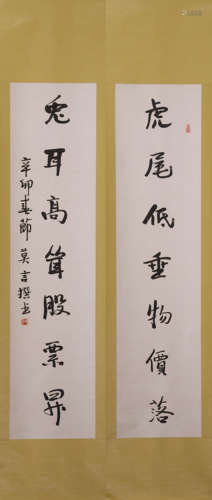 虎尾低垂物價落
兔耳高聳股票昇
辛卯春節莫言撰书